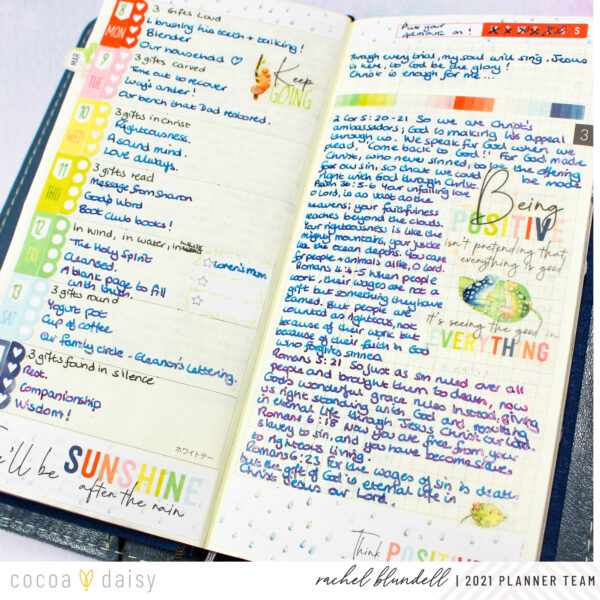 8
MON
3 Gifts Loud
brushing his teeth + talking!
Blender
Our household ♡
MAR
9
TUE
3 gifts carved
Time out to recover
Lucy's ander!
Our bench that Dad restored.
Keep
GOING
10
WED
3 gifts in Christ
Righteousness.
A sound mind.
Love always.
11
THU
3 gifts read
Message from Sharon
God's Word
Book Club books!
12
FRI
In wind, in water, in
The Holy Spirit
Cleansed.
A blank page to fill
with truth.
Loren's Mum
13
SAT
3 gifts round
Yogurt pot
Cup of coffee.
Our family circle - Eleanor's Lettering.
3 gifts found in silence
Rest.
Companionship
Wisdom!
ホワイトデー
'll be SUNSHINE
after the rain
Put your
armour on!
S
Through every trial, my soul will sing, Jesus
is here, to God be the glory!
Christ is enough for me...
3
2 Cor 5:20-21 So we are Christ's
ambassadors; God is making his appeal
through us. We speak for God when we
plead, "Come back to God!" For God made
Christ, who never sinned, to be the offering
for our sin, so that we could be made
right with God through Christ.
Psalm 36:5-6 Your unfailing love
O Lord, is as vast as the
heavens; your faithfulness
reaches beyond the clouds.
Your righteousness is like the
mighty mountains, your justice
like the ocean depths. You care
for people + animals alike, O Lord.
Romans 4:4-5 When people
work, their wages are not a
gift but something they have
earned. But people are
counted as righteous, not
because of their work but
because of their faith in God
who forgives sinners.
Romans 5:21 So just as sin ruled over all
people and brought them to death, now
God's wonderful grace rules instead, giving
us right standing with God and resulting
in eternal life through Jesus Christ our Lord.
Romans 6:18 Now you are free from your
slavery to sin, and you have become slaves
to righteous living.
Romans 6:23 For the wages of sin is death,
but the gift of God is eternal life in
Christ Jesus our Lord.
Being
POSITIVE
isn't pretending that
everything is good
it's seeing the good in
EVERYTHING
Think POSITIVE
cocoa daisy
rachel blundell | 2021 PLANNER TEAM